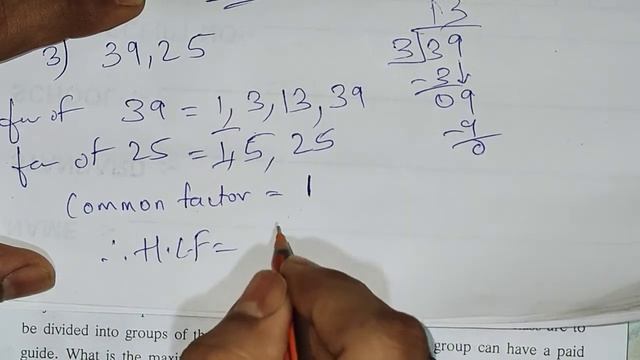 3) 39,25
39 = 1, 3, 13, 39
of 25 = 1,5, 25
Common factor = 1
∴ H.CF=
13
3 39
-3↓
09
-9
0
be divided into groups of
group can have a paid
guide. What is the